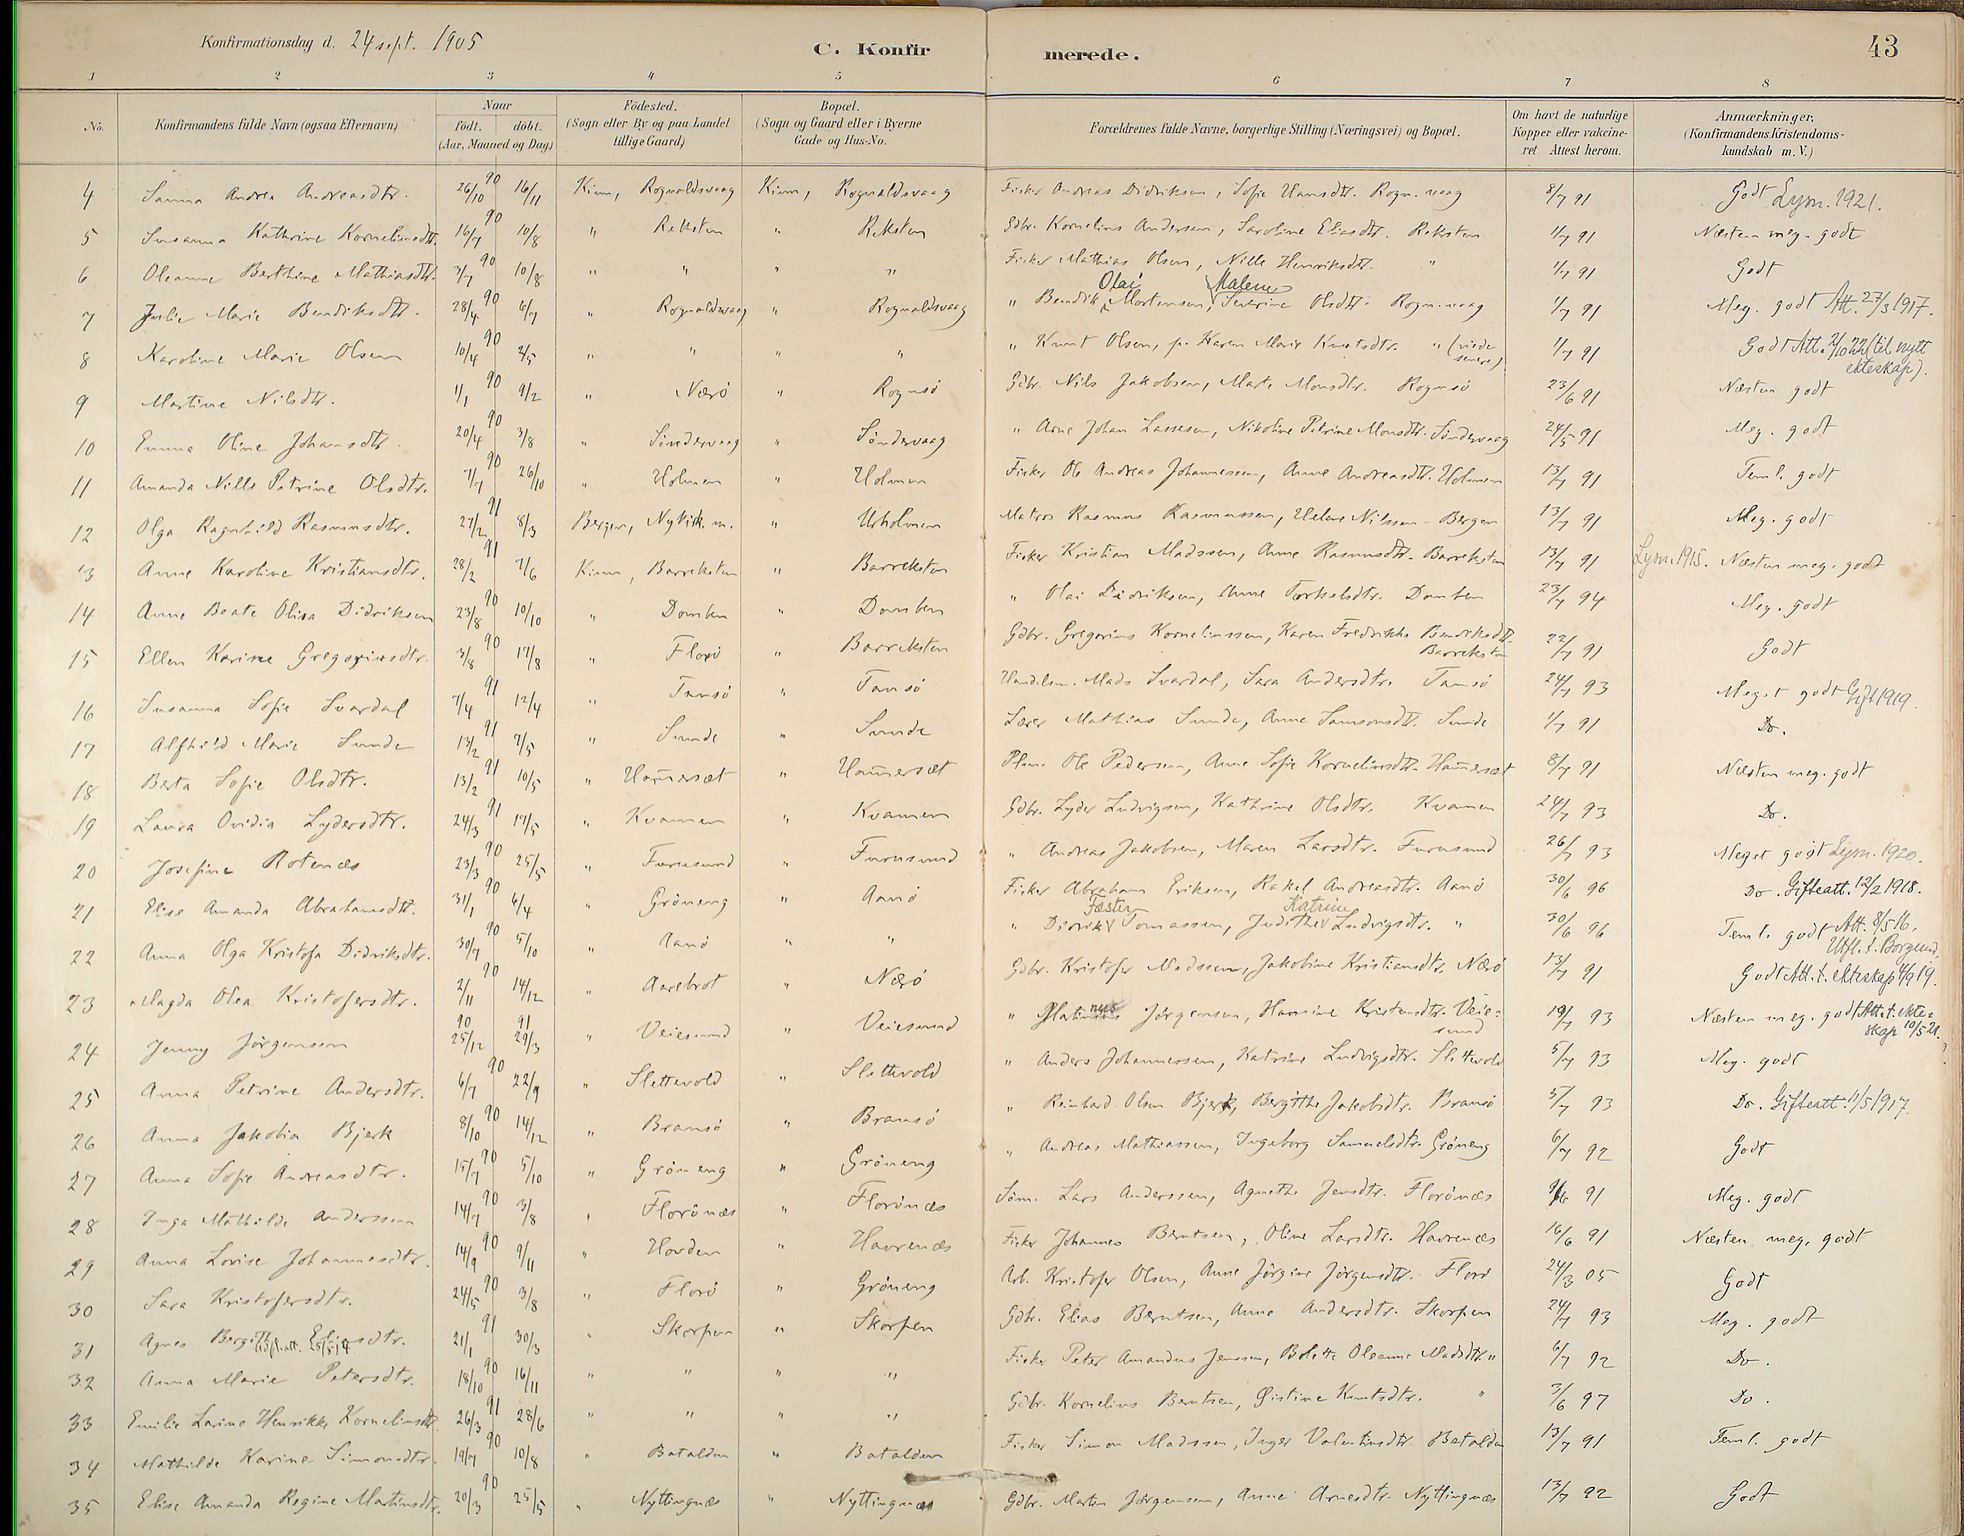 Konfirmationsdag d. 24 sept. 1905
C. Konfirmerede.
43
1 2 3 4 5 6 7 8
No. Konfirmandens fulde Navn (ogsaa Efternavn) Naar födt. döbt. (Aar, Maaned og Dag) Födested. (Sogn eller By og paa Landet tillige Gaard) Bopæl. (Sogn og Gaard eller i Byerne Gade og Hus-No. Forældrenes fulde Navne, borgerlige Stilling (Næringsvei) og Bopæl. Om havt de naturlige Kopper eller vakcineret Attest herom. Anmærkninger, (Konfirmandens Kristendomskundskab m. V.)
4 Sanna Andrea Andreasdtr. 26/10 90 16/11 Kinn, Rognaldsvaag Kinn, Rognaldsvaag Fisker Andreas Didriksen, Sofie Hansdtr. Rogn.vaag 8/7 91 Godt Lysn. 1921.
5 Susanna Kathrine Kornelinsdtr. 16/7 90 10/8 " Reksten " Reksten Gdbr. Kornelius Andersen, Saroline Eliasdtr. Reksten 1/7 91 Næsten meg. godt
6 Oleanne Berthine Mathiasdtr. 3/7 90 10/8 " " " " Fisker Mathias Olsen, Nille Henriksdtr. " 1/7 91 Godt
7 Julie Marie Bendiksdtr. 28/4 90 6/7 " Rognaldsvaag " Rognaldsvaag " Bendik Olai Mortensen, Malene Severine Olsdtr. Rogn.vaag 1/7 91 Meg. godt Att. 27/3 1917.
8 Karoline Marie Olsen 10/4 90 2/5 " " " " " Knut Olsen, p. Karen Marie Knutsdtr. " (viede senere) 1/7 91 Godt Att. 2/10 22 (til nytt ekteskap).
9 Martine Nilsdtr. 1/1 90 9/2 " Nærö " Rognsö Gdbr. Nils Jakobsen, Marte Monsdtr. Rognsö 23/6 91 Næsten godt
10 Emma Oline Johansdtr. 20/4 90 3/8 " Söndervaag " Söndervaag " Arne Johan Lassesen, Nikoline Petrine Monsdtr. Söndervaag 24/5 91 Meg. godt
11 Amanda Nille Petrine Olsdtr. 7/7 90 26/10 " Holmen " Holmen Fisker Ole Andreas Johannessen, Anne Andreasdtr. Holmen 13/7 91 Teml. godt
12 Olga Ragnhild Rasmusdtr. 27/2 91 8/3 Bergen, Nykirk. m. " Urholmen Matros Rasmus Rasmussen, Helene Nilssen - Bergen 13/7 91 Meg. godt
13 Anne Karoline Kristiansdtr. 28/2 91 7/6 Kinn, Barreksten " Barreksten Fisker Kristian Madssen, Anne Rasmusdtr. Barreksten 13/7 91 Lysn. 1915. Næsten meg. godt
14 Anne Beate Olisa Didriksen 23/8 90 10/10 " Domben " Domben " Olai Didriksen, Anne Torkelsdtr. Domben 23/7 94 Meg. godt
15 Ellen Karine Gregoriusdtr. 3/8 90 17/8 " Florö " Barreksten Gdbr. Gregorius Kornelinssen, Karen Fredrikke Bendiksdtr. Barreksten 22/7 91 Godt
16 Susanna Sofie Svardal 7/4 91 12/4 " Tansö " Tansö Handelsm. Mads Svardal, Sara Andersdtr. Tansö 24/7 93 Meget godt Gift 1919.
17 Alfhild Marie Sunde 13/2 91 7/5 " Sunde " Sunde Lærer Mathias Sunde, Anne Samsonsdtr. Sunde 1/7 91 Do.
18 Berta Sofie Olsdtr. 13/2 91 10/5 " Ham̄ersæt " Ham̄ersæt Plm. Ole Pedersen, Anne Sofie Kornelinsdtr. Ham̄ersæt 8/7 91 Næsten meg. godt
19 Laura Ovidia Lydersdtr. 24/3 91 17/5 " Kvammen " Kvamen Gdbr. Lyder Ludvigsen, Kathrine Olsdtr. Kvamen 24/7 93 Do.
20 Josefine Rotenæs 23/3 90 25/5 " Furusund " Furusund " Andreas Jakobsen, Maren Larsdtr. Furusund 26/7 93 Meget godt Lysn. 1920.
21 Elise Amanda Abrahamsdtr. 31/1 90 6/4 " Gröneng " Aanö Fisker Abraham Eriksen, Rakel Andreasdtr. Aanö 30/6 96 Do. Gifteatt. 12/2 1918.
22 Anna Olga Kristofa Didriksdtr. 30/7 90 5/10 " Aanö " " " Didrik Fæster Tomassen, Judithe Katrine Ludvigsdtr. " 30/6 96 Teml. godt Att. 8/5 16. Utfl. t. Borgund.
23 Magda Olea Kristofersdtr. 2/11 90 14/12 " Aarebrot " Nærö Gdbr. Kristofer Madssen, Jakobine Kristiansdtr. Nærö 13/7 91 Godt Att. t. ekteskap 4/9 19.
24 Jenny Jörgensen 25/12 90 29/3 91 " Veiesund " Veiesund " Martinus Jörgensen, Hansine Kristensdtr. Veiesund 19/7 93 Næsten meg. godt Att. t. ekteskap 10/5 21.
25 Anna Petrine Andersdtr. 6/7 90 22/9 " Slettevold " Slettevold " Anders Johannessen, Katrine Ludvigsdtr. Slettevold 5/7 93 Meg. godt
26 Anna Jakobia Bjerk 8/10 90 14/12 " Bransö " Bransö " Reinhard Olsen Bjerk, Bergitthe Jakobsdtr. Bransö 5/7 93 Do. Gifteatt. 1/5 1917.
27 Anna Sofie Andreasdtr. 15/7 90 5/10 " Gröneng " Gröneng " Andreas Mathiassen, Ingeborg Samuelsdtr. Gröneng 6/7 92 Godt
28 Inga Mathilde Anderssen 14/7 90 3/8 " Florönæs " Florönæs Söm. Lars Anderssen, Agnethe Jensdtr. Florönæs 91 Meg. godt
29 Anna Lovise Johannesdtr. 14/9 90 9/11 " Hovden " Havrenæs Fisker Johannes Berntsen, Oline Larsdtr. Havrenæs 16/6 91 Næsten meg. godt
30 Sara Kristofersdtr. 24/5 90 3/8 " Florö " Gröneng Arb. Kristofer Olsen, Anne Jörgine Jörgensdtr. Florö 24/3 05 Godt
31 Agnes Bergithe Eliasdtr. 21/1 91 30/3 " Skorpen " Skorpen Gdbr. Elias Berntsen, Anne Andersdtr. Skorpen 24/7 93 Meg. godt
32 Anna Marie Petersdtr. 18/10 90 16/11 " " " " Fisker Peter Amandus Jenssen, Bolette Oleanne Madsdtr. " 6/7 92 Do.
33 Emilie Larine Henrikke Kornelinsdtr. 26/3 91 28/6 " " " " Gdbr. Kornelius Berntsen, Øistine Knutsdtr. " 3/6 97 Do.
34 Mathilde Karine Simonsdtr. 19/7 90 10/8 " Batalden " Batalden Fisker Simon Madssen, Inger Valentinsdtr. Batalden 13/7 91 Teml. godt
35 Elise Amanda Regine Martinsdtr. 20/3 90 25/5 " Nyttingnæs " Nyttingnæs Gdbr. Martin Jörgensen, Anne Arnesdtr. Nyttingnæs 13/7 92 Godt